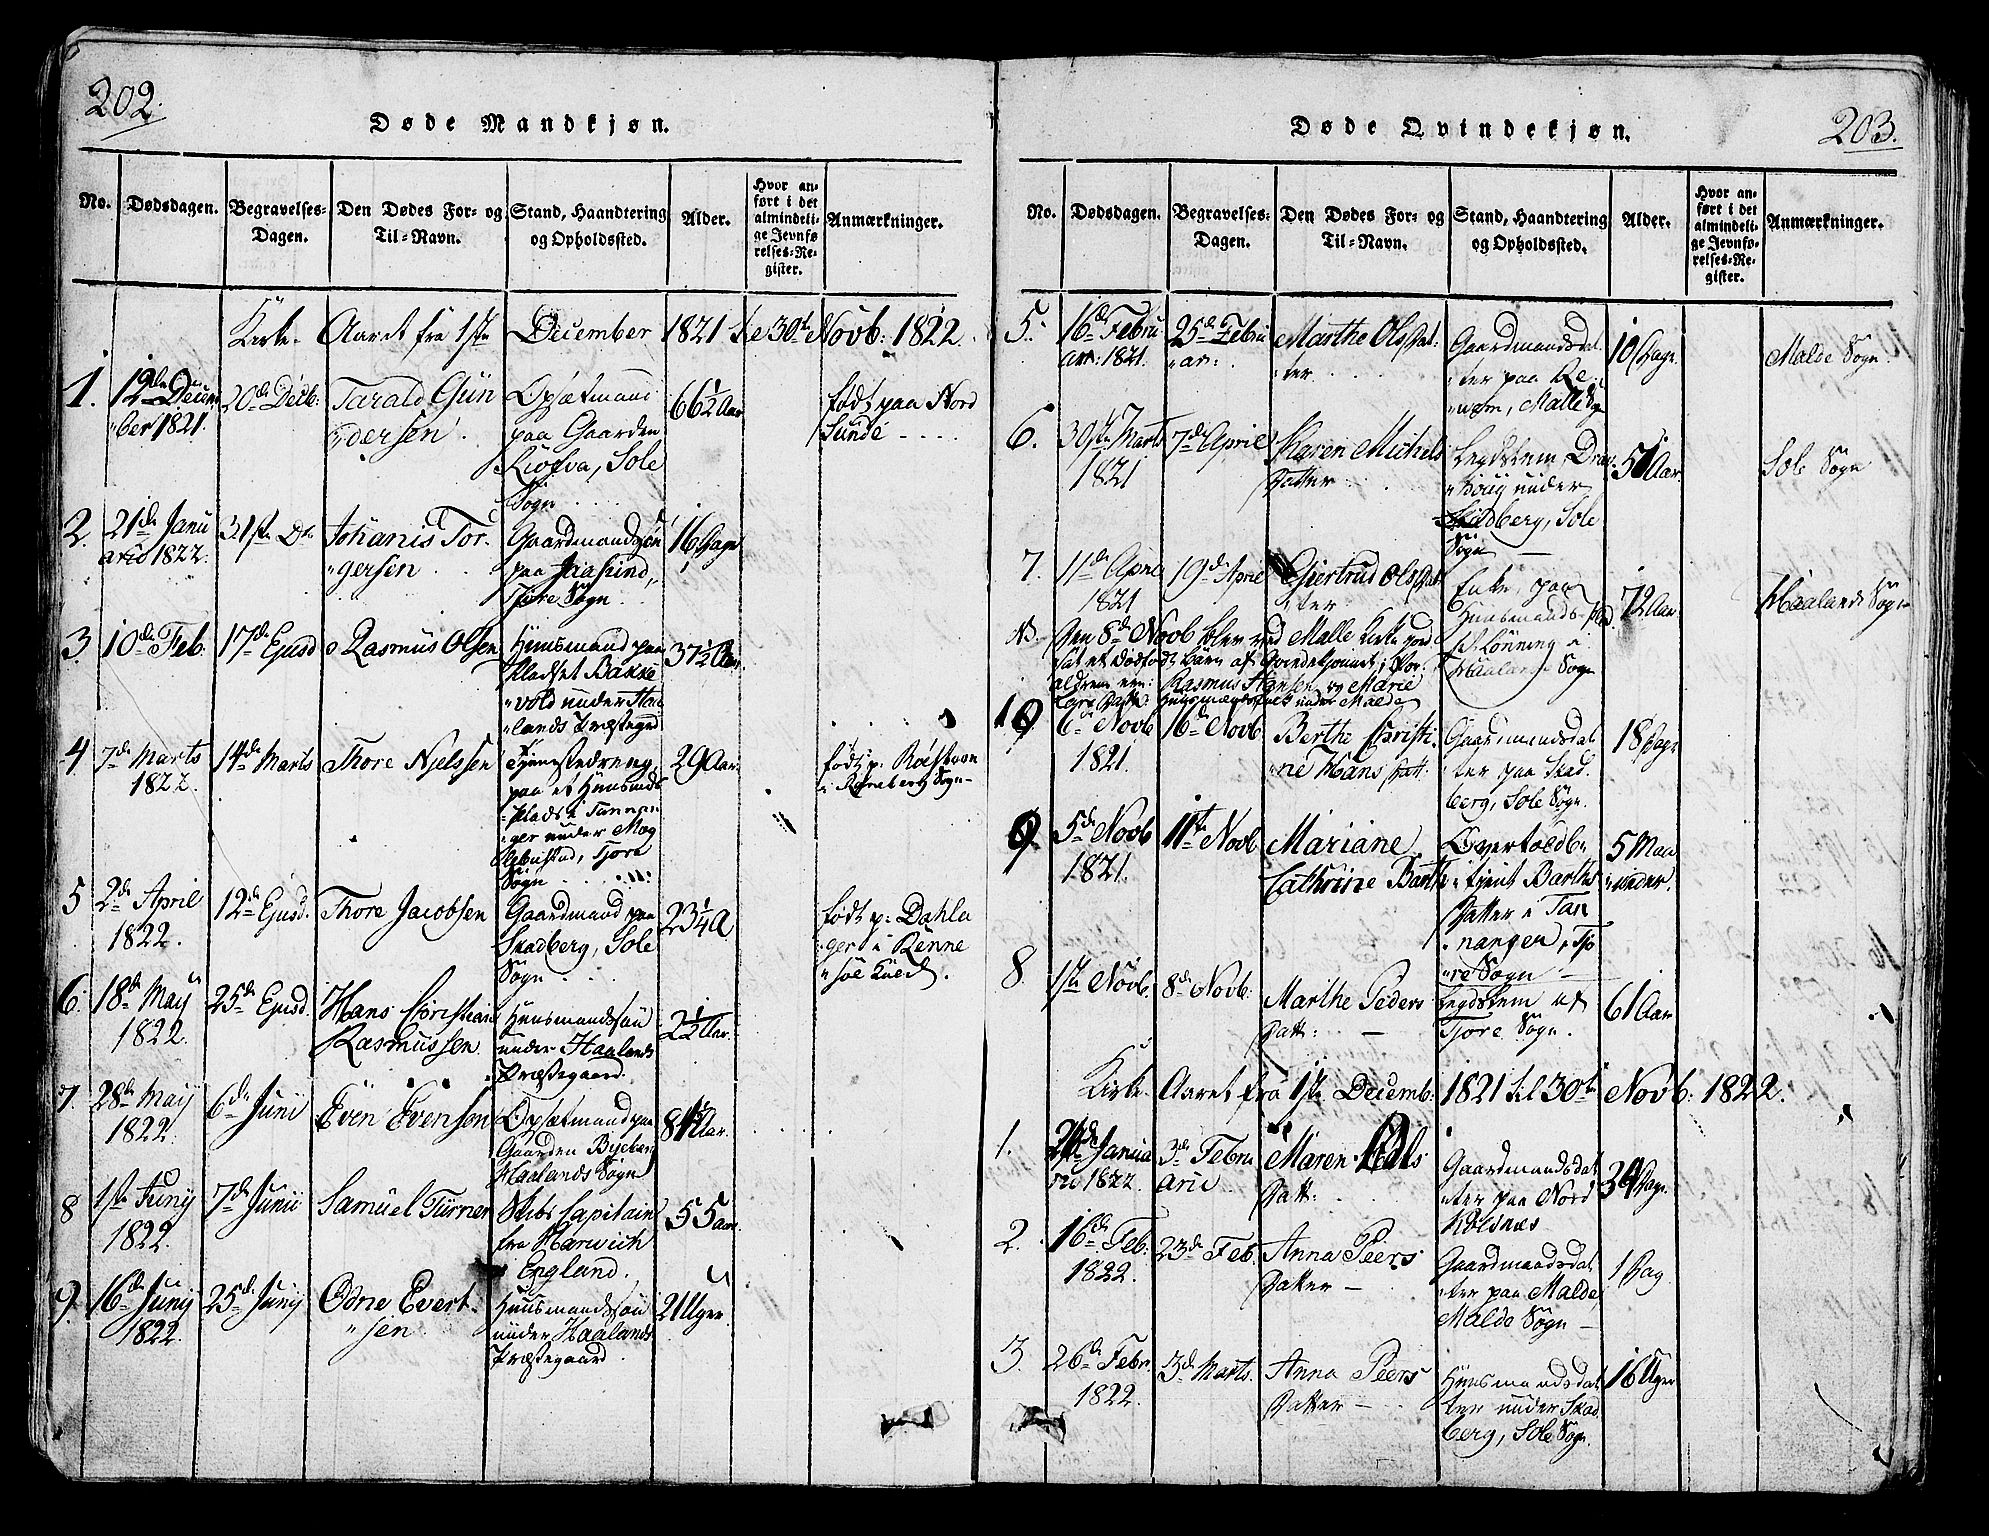 202.
Døde Mandkjøn.
No.
Dødsdagen.
Begravelses-
Dagen.
Den Dødes For- og
Til-Navn.
Stand, Haandtering
og Opholdssted.
Alder.
Hvor an-
ført i det
almindeli-
ge Jevnfø
relses-Re-
gister.
Anmærkninger.
Kirke- Aaret fra 1ste December 1821 til 30te Novb: 1822.
1.
12de Decem
ber 1821.
20de Decb:
Tarald Gun
dersen.
Opsætmand
paa Gaarden
Sole
Sogn
66½ Aar
født paa Nord
Sunde
2.
21de Janu
arid 1822.
31ste Do
Johanis Tor-
gersen
Gaardmandssøn
paa Jaasund,
Tjore Sogn
16 Dage
3.
10de Feb.
17de Ejusd
Rasmus Olsen
Huusmand paa
Pladset Bakke
vold under Haa
lands Præstegrd
37½ Aar
4.
7de Marts
1822.
14de Marts
Thore Njelssen
Tjenestedreng,
paa et Huusmds
Plads i Tannan
ger under Mog
Tjore
Sogn
29 Aar
født p.
i Renneberg Sogn
5
2de April
1822.
12de Ejusd.
Thore Jacobsen
Gaardmand paa
Skadberg, Sole
Sogn
23¼ A
født p: Dahla
ger i Renne
søe
6.
18de May
1822.
25de Ejusd
Hans Christian
Rasmussen.
Huusmandssøn
under Haalands
Præstegaard.
2½ Aar.
7.
28de May
1822.
6de Junii
Even Evensen
Opsætmand paa
Gaarden
Haalands Sogn
81 Aar.
8
1ste Junij
1822.
7de Junii
Samuel Turner
Skibs Capitain
fra Harwich
England.
55 Aar
9.
16de Junij
1822.
25de Junij
Odne Evert
sen
Huusmandssøn
under Haalands
Præstegaard.
21 Uger
203.
Døde Qvindekjøn.
No.
Dødsdagen.
Begravelses-
Dagen.
Den Dødes For- og
Til-Navn.
Stand, Haandtering
og Opholdssted.
Alder.
Hvor an-
ført i det
almindeli-
ge Jevnfø-
relses-Re-
gister.
Anmærkninger.
5.
16de Febru
ar: 1821.
25de Febru
ar:
Marthe Ols Dat
ter
Gaardmandsdat
ter paa Re-
Malle Sogn
10 Dage
Malde Sogn
6.
30ste Marts
1821
7de April
Karen Michels
Datter
Legdslem,
under
Skadberg, Sole
Sogn
51 Aar
Sole Sogn
7.
11de April
1821
19de April
Giertrud Ols Dat
ter
Enke, paa
Huusmands-Plds
Lønning i
Haalands Sogn
72 Aar
Haalands Sogn
NB. Den 8de Novb blev ved Malle Kirke jord
sat et dødfødt Barn af Qvindekjønnet; For
ældrene ere: Rasmus Hansen og Marie
Lars Datter Huusmandsfolk under Malde
10
6de Novb
1821.
16de Novb
Berthe Christi
ne Hans Datt:
Gaardmandsdat
ter paa Skad
berg, Sole Sogn.
18 Dage
9.
5de Novb
1821.
11te Novb
Mariane
Cathrine Barth
Overtoldb
tjent Barths
Datter i Tan
nanger, Tjo
re Sogn
5 Maa
neder.
8.
1ste Novb.
8de Novb:
Marthe Peders
Datt:
Legdslem af
Tjore Sogn.
61 Aar
Kirke- Aaret fra 1ste Decemb: 1821 til 30te Novb: 1822.
1.
Janua
rii 1822
3de Febru
arii
Maren
Datt:
Gaardmandsdat
ter paa Nord
Kolsnæs
Dage.
2.
16de Feb:
1822.
23de Feb.
Anna Peers
Datter
Gaardmandsdat
ter paa Malde,
Malde Sogn
1 Dag
3.
26de Febr.
1822.
3de Marts.
Anna Peers
Datter
Huusmandsdat
ter under Skad
berg, Sole Sogn.
16 Uger